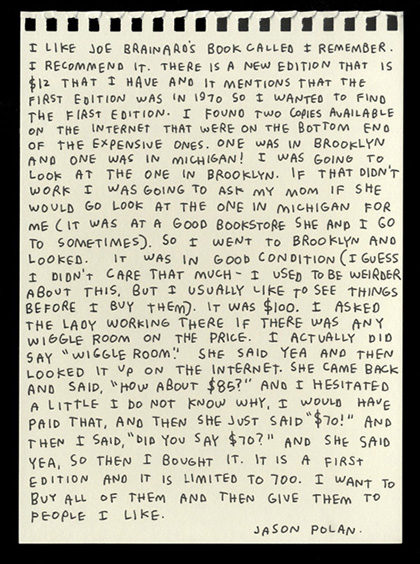 I LIKE JOE BRAINARD'S BOOK CALLED I REMEMBER.
I RECOMMEND IT. THERE IS A NEW EDITION THAT IS
$12 THAT I HAVE AND IT MENTIONS THAT THE
FIRST EDITION WAS IN 1970 SO I WANTED TO FIND
THE FIRST EDITION. I FOUND TWO COPIES AVAILABLE
ON THE INTERNET THAT WERE ON THE BOTTOM END
OF THE EXPENSIVE ONES. ONE WAS IN BROOKLYN
AND ONE WAS IN MICHIGAN! I WAS GOING TO
LOOK AT THE ONE IN BROOKLYN. IF THAT DIDN'T
WORK I WAS GOING TO ASK MY MOM IF SHE
WOULD GO LOOK AT THE ONE IN MICHIGAN FOR
ME (IT WAS AT A GOOD BOOKSTORE SHE AND I GO
TO SOMETIMES). SO I WENT TO BROOKLYN AND
LOOKED. IT WAS IN GOOD CONDITION (I GUESS
I DIDN'T CARE THAT MUCH - I USED TO BE WEIRDER
ABOUT THIS, BUT I USUALLY LIKE TO SEE THINGS
BEFORE I BUY THEM). IT WAS $100. I ASKED
THE LADY WORKING THERE IF THERE WAS ANY
WIGGLE ROOM ON THE PRICE. I ACTUALLY DID
SAY "WIGGLE ROOM." SHE SAID YEA AND THEN
LOOKED IT UP ON THE INTERNET. SHE CAME BACK
AND SAID, "HOW ABOUT $85?" AND I HESITATED
A LITTLE I DO NOT KNOW WHY, I WOULD HAVE
PAID THAT, AND THEN SHE JUST SAID "$70!" AND
THEN I SAID, "DID YOU SAY $70?" AND SHE SAID
YEA, SO THEN I BOUGHT IT. IT IS A FIRST
EDITION AND IT IS LIMITED TO 700. I WANT TO
BUY ALL OF THEM AND THEN GIVE THEM TO
PEOPLE I LIKE.
JASON POLAN.